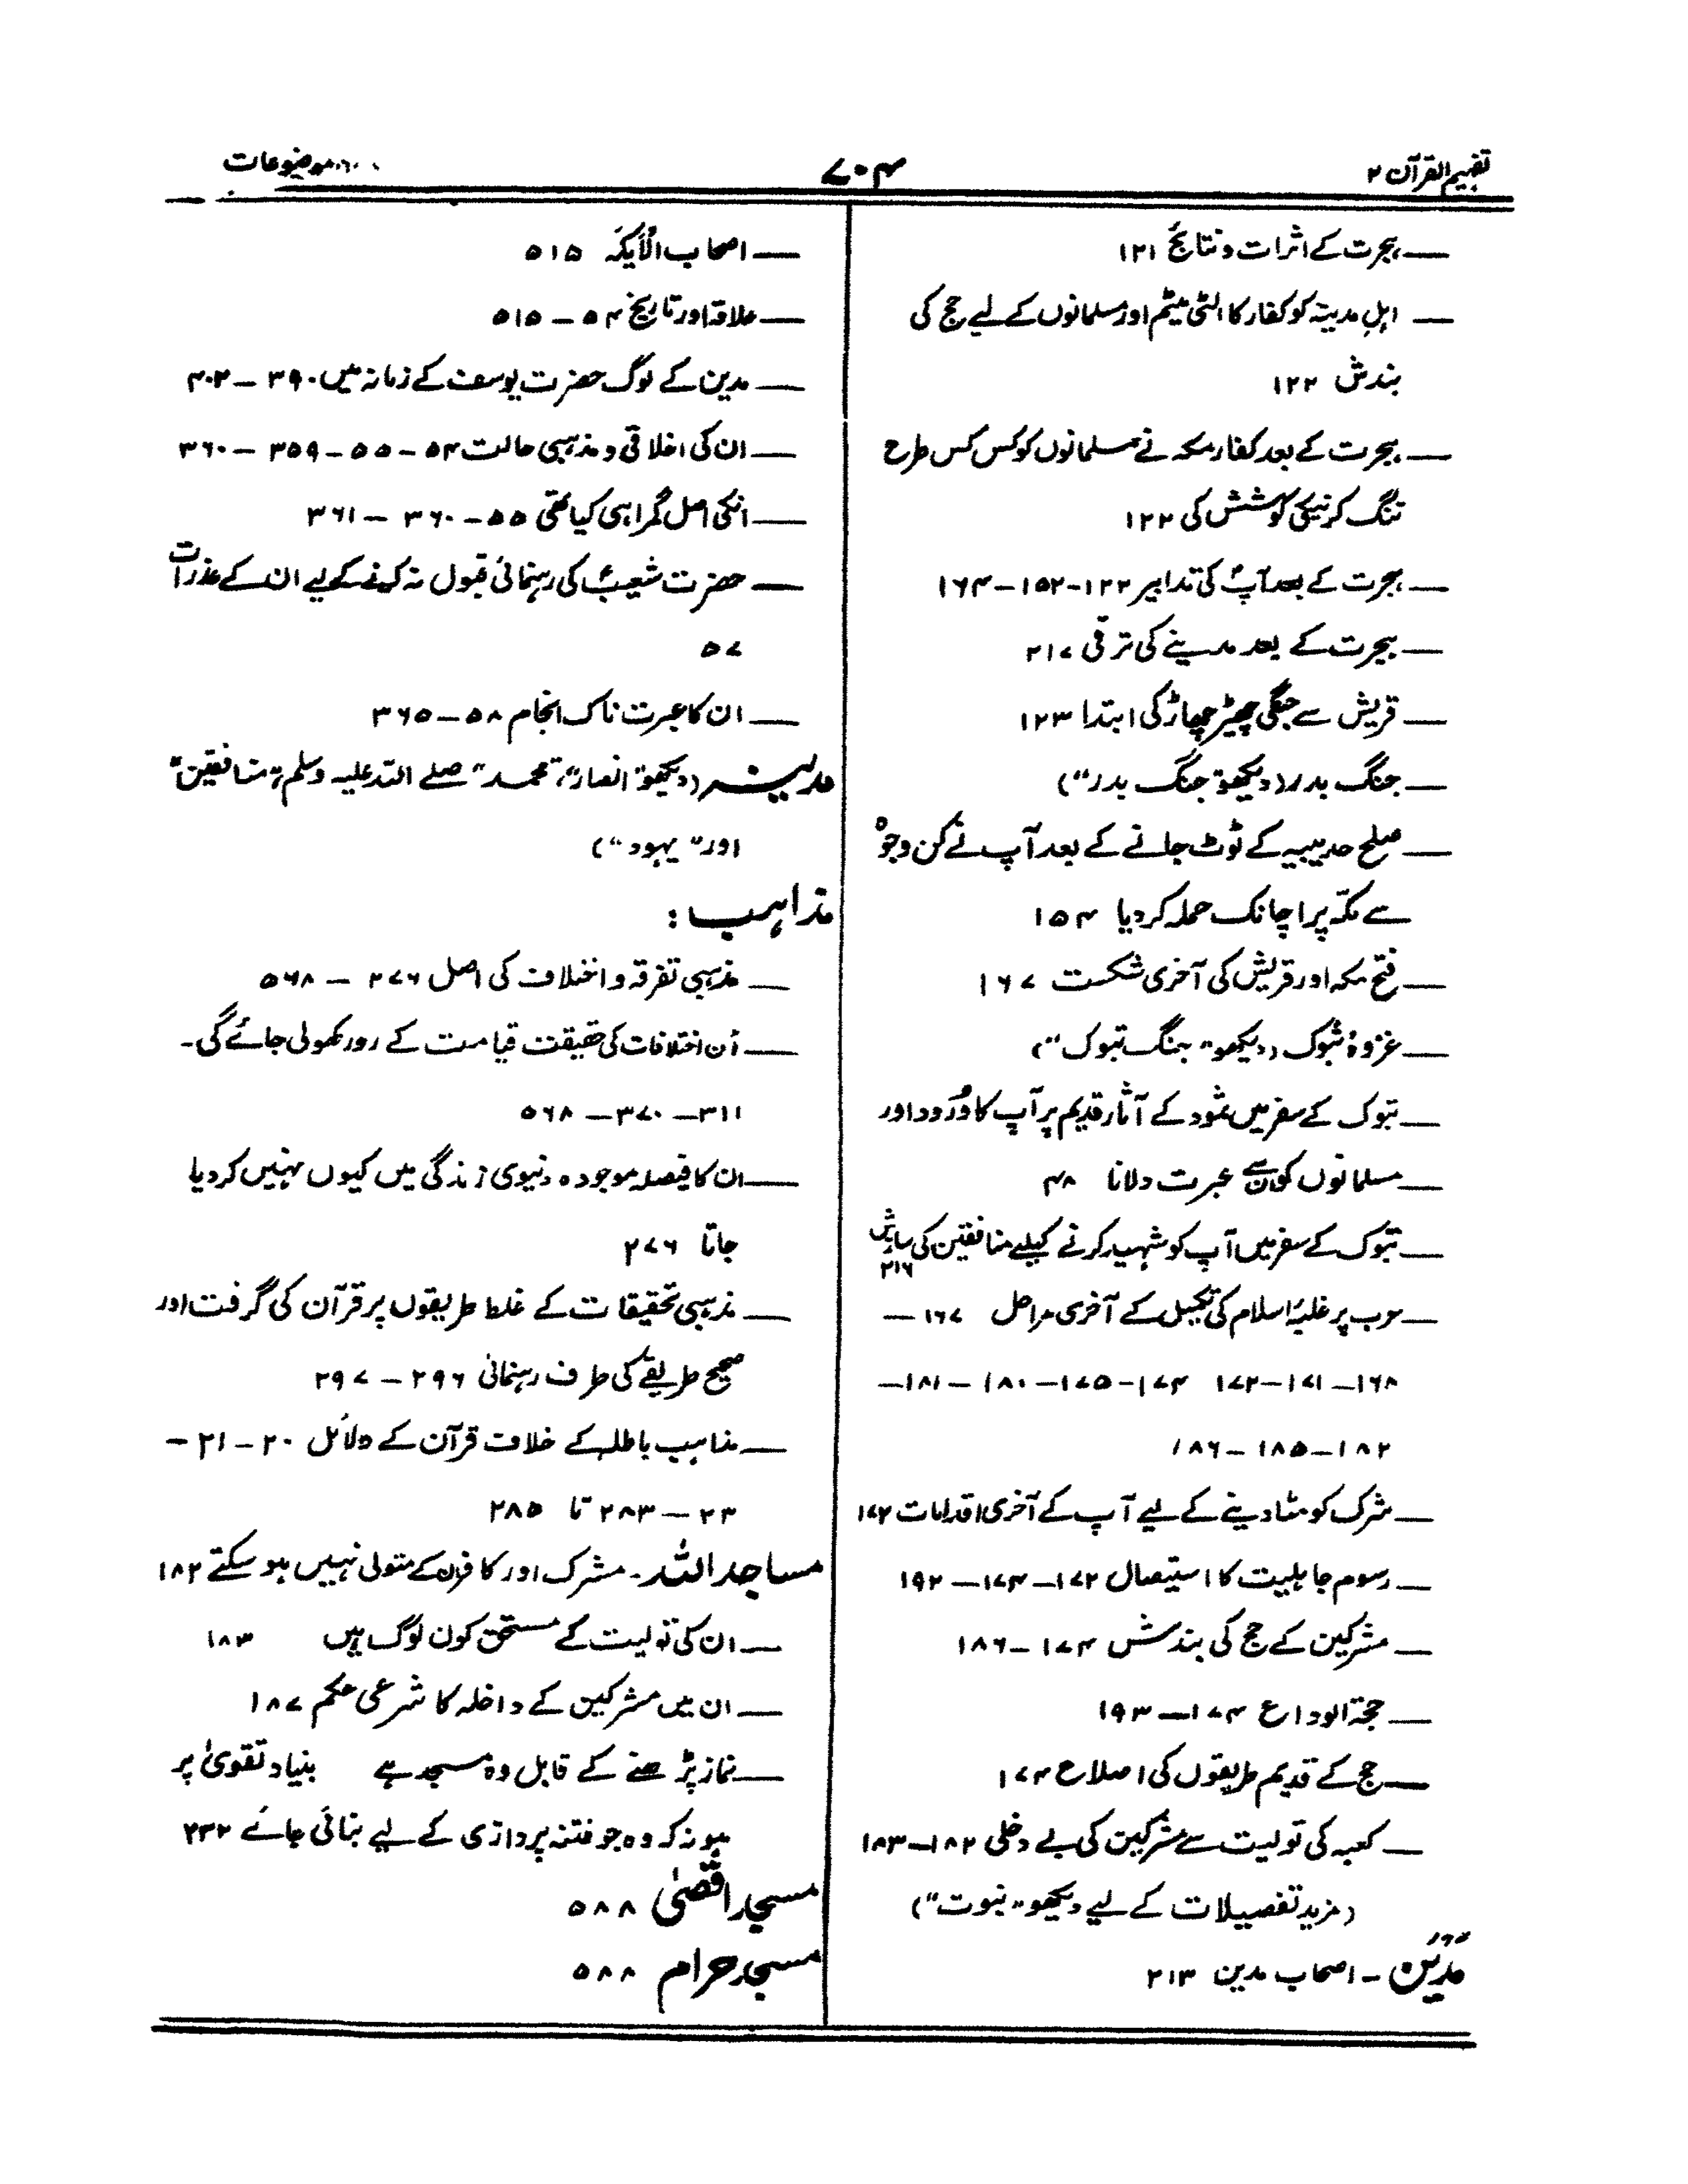 تفہیم القرآن ۲
۷۰۴
موضوعات
— ہجرت کے اثرات و نتائج ۱۲۱
— اہلِ مدینہ کو کفار کا الٹی میٹم اور مسلمانوں کے لیے حج کی
بندش ۱۲۲
— ہجرت کے بعد کفار مکہ نے مسلمانوں کو کس کس طرح
تنگ کرنیکی کوشش کی ۱۲۲
— ہجرت کے بعد آپؐ کی تدابیر ۱۲۲-۱۵۲-۱۶۴
— ہجرت کے بعد مدینے کی ترقی ۲۱۷
— قریش سے جنگی چھیڑ چھاڑ کی ابتدا ۱۲۳
— جنگ بدر (دیکھو "جنگ بدر")
— صلح حدیبیہ کے ٹوٹ جانے کے بعد آپ نے کن وجوہ
سے مکّہ پر اچانک حملہ کر دیا ۱۵۴
— فتح مکہ اور قریش کی آخری شکست ۱۶۷
— غزوۂ تبوک (دیکھو "جنگ تبوک")
— تبوک کے سفر میں ثمود کے آثار قدیم پر آپ کا وُرُود اور
— مسلمانوں کو ان سے عبرت دلانا ۴۸
— تبوک کے سفر میں آپ کو شہید کرنے کیلیے منافقین کی سازش
۲۱۶
— عرب پر غلبۂ اسلام کی تکمیل کے آخری مراحل ۱۶۷ —
۱۶۸—۱۷۱—۱۷۲ ۱۷۴—۱۷۵—۱۸۰—۱۸۱—
۱۸۲—۱۸۵—۱۸۶
— شرک کو مٹا دینے کے لیے آپ کے آخری اقدامات ۱۷۲
— رسوم جاہلیت کا استیصال ۱۷۲—۱۷۴—۱۹۲
— مشرکین کے حج کی بندش ۱۷۴—۱۸۶
— حجۃ الوداع ۱۷۴—۱۹۳
— حج کے قدیم طریقوں کی اصلاح ۱۷۴
— کعبہ کی تولیت سے مشرکین کی بے دخلی ۱۸۲—۱۸۳
(مزید تفصیلات کے لیے دیکھو "نبوت")
مَدْیَن - اصحاب مدین ۲۱۳
— اصحاب الْاَیکَہ ۵۱۵
— علاقہ اور تاریخ ۵۴ — ۵۱۵
— مدین کے لوگ حضرت یوسف کے زمانہ میں ۳۹۰—۴۰۲
— ان کی اخلاقی و مذہبی حالت ۵۴—۵۵—۳۵۹—۳۶۰
— انکی اصل گمراہی کیا تھی ۵۵—۳۶۰—۳۶۱
— حضرت شعیبؑ کی رہنمائی قبول نہ کرنے کے لیے ان کے عذرات
۵۷
— ان کا عبرت ناک انجام ۵۸—۳۶۵
مدینہ (دیکھو "انصار"، "محمد" صلے اللہ علیہ وسلم، "منافقین"
اور "یہود")
مذاہب :
— مذہبی تفرقہ و اختلاف کی اصل ۲۷۶ — ۵۶۸
— اُن اختلافات کی حقیقت قیامت کے روز کھولی جائے گی۔
۳۱۱—۳۷۰—۵۶۸
— ان کا فیصلہ موجودہ دنیوی زندگی میں کیوں نہیں کر دیا
جاتا ۲۷۶
— مذہبی تحقیقات کے غلط طریقوں پر قرآن کی گرفت اور
صحیح طریقے کی طرف رہنمائی ۲۹۶—۲۹۷
— مذاہب باطلہ کے خلاف قرآن کے دلائل ۲۰—۲۱—
۲۳—۲۸۳ تا ۲۸۵
مساجد اللہ - مشرک اور کافر ان کے متولی نہیں ہو سکتے ۱۸۲
— ان کی تولیت کے مستحق کون لوگ ہیں ۱۸۳
— ان میں مشرکین کے داخلہ کا شرعی حکم ۱۸۷
— نماز پڑھنے کے قابل وہ مسجد ہے بنیاد تقویٰ پر
ہو نہ کہ وہ جو فتنہ پردازی کے لیے بنائی جائے ۲۳۲
مسجد اقصیٰ ۵۸۸
مسجد حرام ۵۸۸